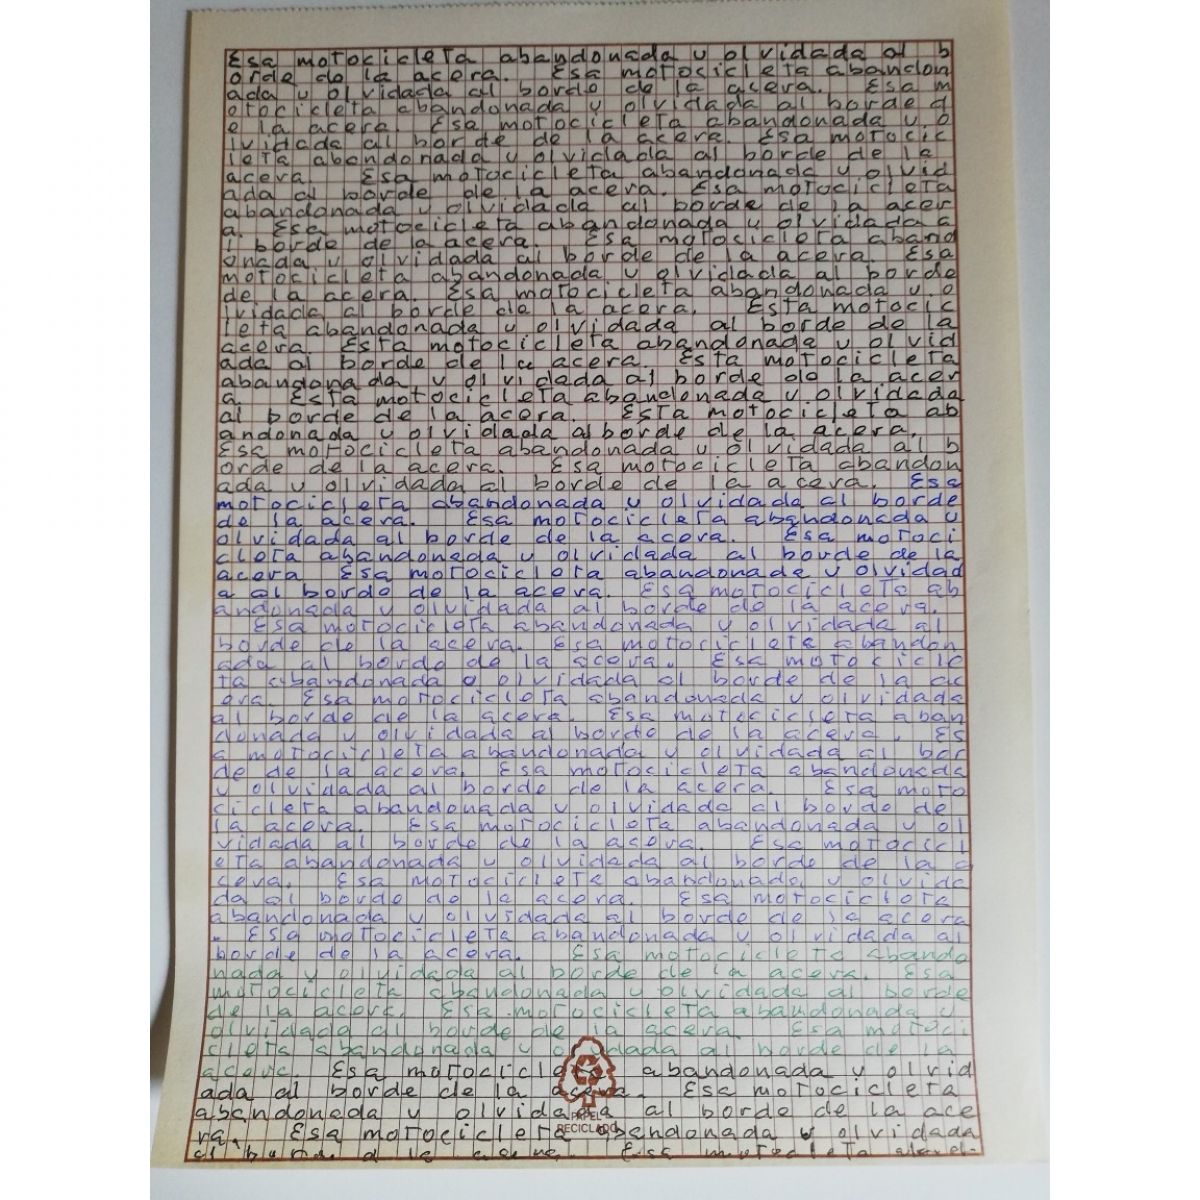 Esa motocicleta abandonada y olvidada al b
orde de la acera. Esa motocicleta abandon
ada y olvidada al borde de la acera. Esa m
otocicleta abandonada y olvidada al borde d
e la acera. Esa motocicleta abandonada y o
lvidada al borde de la acera. Esa motocic
leta abandonada y olvidada al borde de la
acera. Esa motocicleta abandonada y olvid
ada al borde de la acera. Esa motocicleta
abandonada y olvidada al borde de la acer
a. Esa motocicleta abandonada y olvidada a
l borde de la acera. Esa motocicleta aband
onada y olvidada al borde de la acera. Esa
motocicleta abandonada y olvidada al borde
de la acera. Esa motocicleta abandonada y o
lvidada al borde de la acera. Esta motocic
leta abandonada y olvidada al borde de la
acera. Esta motocicleta abandonada y olvid
ada al borde de la acera. Esta motocicleta
abandonada y olvidada al borde de la acer
a. Esta motocicleta abandonada y olvidada
al borde de la acera. Esta motocicleta ab
andonada y olvidada al borde de la acera.
Esa motocicleta abandonada y olvidada al b
orde de la acera. Esa motocicleta abandon
ada y olvidada al borde de la acera. Esa
motocicleta abandonada y olvidada al borde
de la acera. Esa motocicleta abandonada y
olvidada al borde de la acera. Esa motoci
cleta abandonada y olvidada al borde de la
acera Esa motocicleta abandonada y olvidad
a al borde de la acera. Esa motocicleta ab
andonada y olvidada al borde de la acera.
Esa motocicleta abandonada y olvidada al
borde de la acera. Esa motocicleta abandon
ada al borde de la acera. Esa motocicle
ta abandonada o olvidada al borde de la ac
era. Esa motocicleta abandonada y olvidada
al borde de la acera. Esa motocicleta aban
donada y olvidada al borde de la acera. Es
a motocicleta abandonada y olvidada al bor
de de la acera. Esa motocicleta abandonada
y olvidada al borde de la acera. Esa moto
cicleta abandonada y olvidada al borde de
la acera. Esa motocicleta abandonada y ol
vidada al borde de la acera. Esa motocicl
eta abandonada y olvidada al borde de la a
cera. Esa motocicleta abandonada y olvida
da al borde de la acera. Esa motocicleta
abandonada y olvidada al borde de la acera
. Esa motocicleta abandonada y olvidada al
borde de la acera. Esa motocicleta abando
nada y olvidada al borde de la acera. Esa
motocicleta abandonada y olvidada al borde
de la acera. Esa motocicleta abandonada y
olvidada al borde de la acera. Esa motoci
cleta abandonada y olvidada al borde de la
acera. Esa motocicleta abandonada y olvid
ada al borde de la acera. Esa motocicleta
abandonada y olvidada al borde de la ace
ra. Esa motocicleta abandonada y olvidada
PAPEL
RECICLADO
al borde de la acera. Esa motocicleta